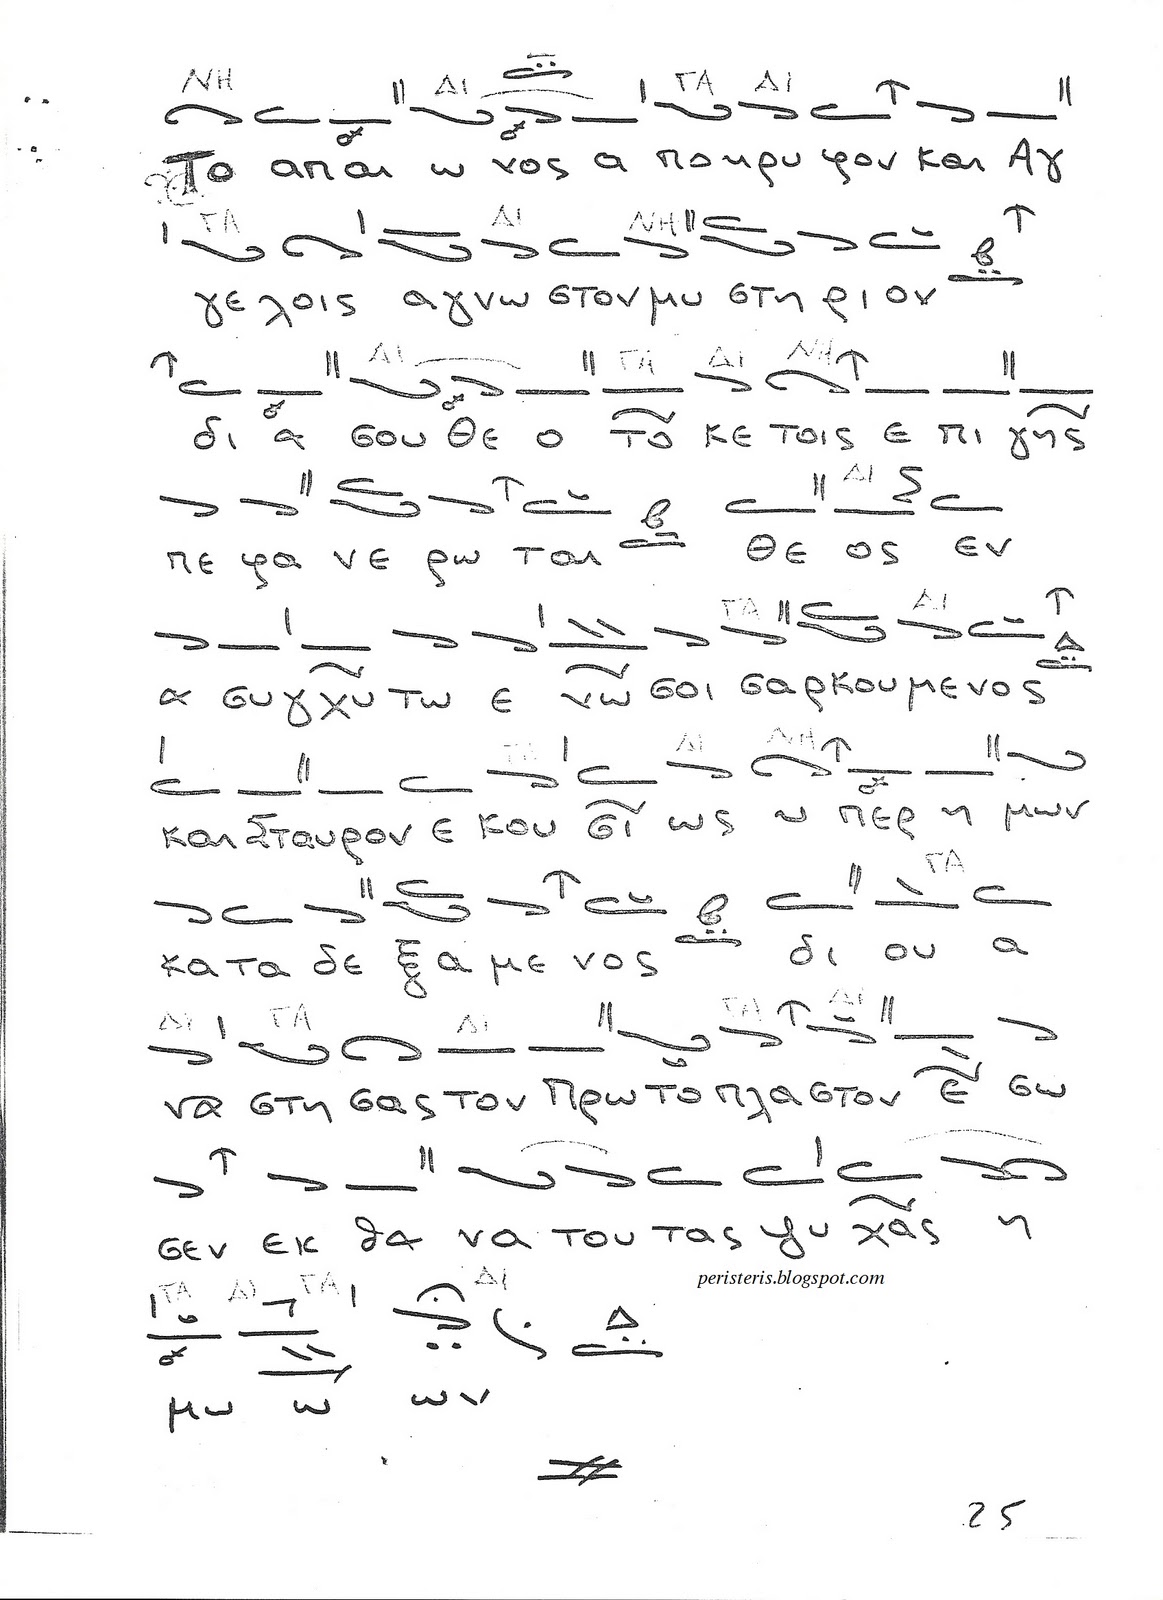 ΝΗ ΔΙ ΓΑ ΔΙ
Το απαι ω νος α ποκρυ φον και Αγ
ΓΑ ΔΙ ΝΗ
γε λοις αγνω στον μυ στη ρι ον
ΔΙ ΓΑ ΔΙ ΝΗ
δι α σου Θε ο το κε τοις ε πι γης
ΔΙ
πε φα νε ρω ται Θε ος εν
ΓΑ ΔΙ
α συγχυ τω ε νω σοι σαρκουμενος Δ
ΓΑ ΔΙ ΝΗ
και Σταυρον ε κου σι ως υ περ η μων
ΓΑ
κα τα δε ξα με νος δι ου α
ΔΙ ΓΑ ΔΙ ΓΑ ΔΙ
να στη σας τον Πρωτο πλα στον ε σω
σεν εκ θα να του τας ψυ χας η
peristeris.blogspot.com
ΓΑ ΔΙ ΓΑ ΔΙ Δ
μω ω ων
25